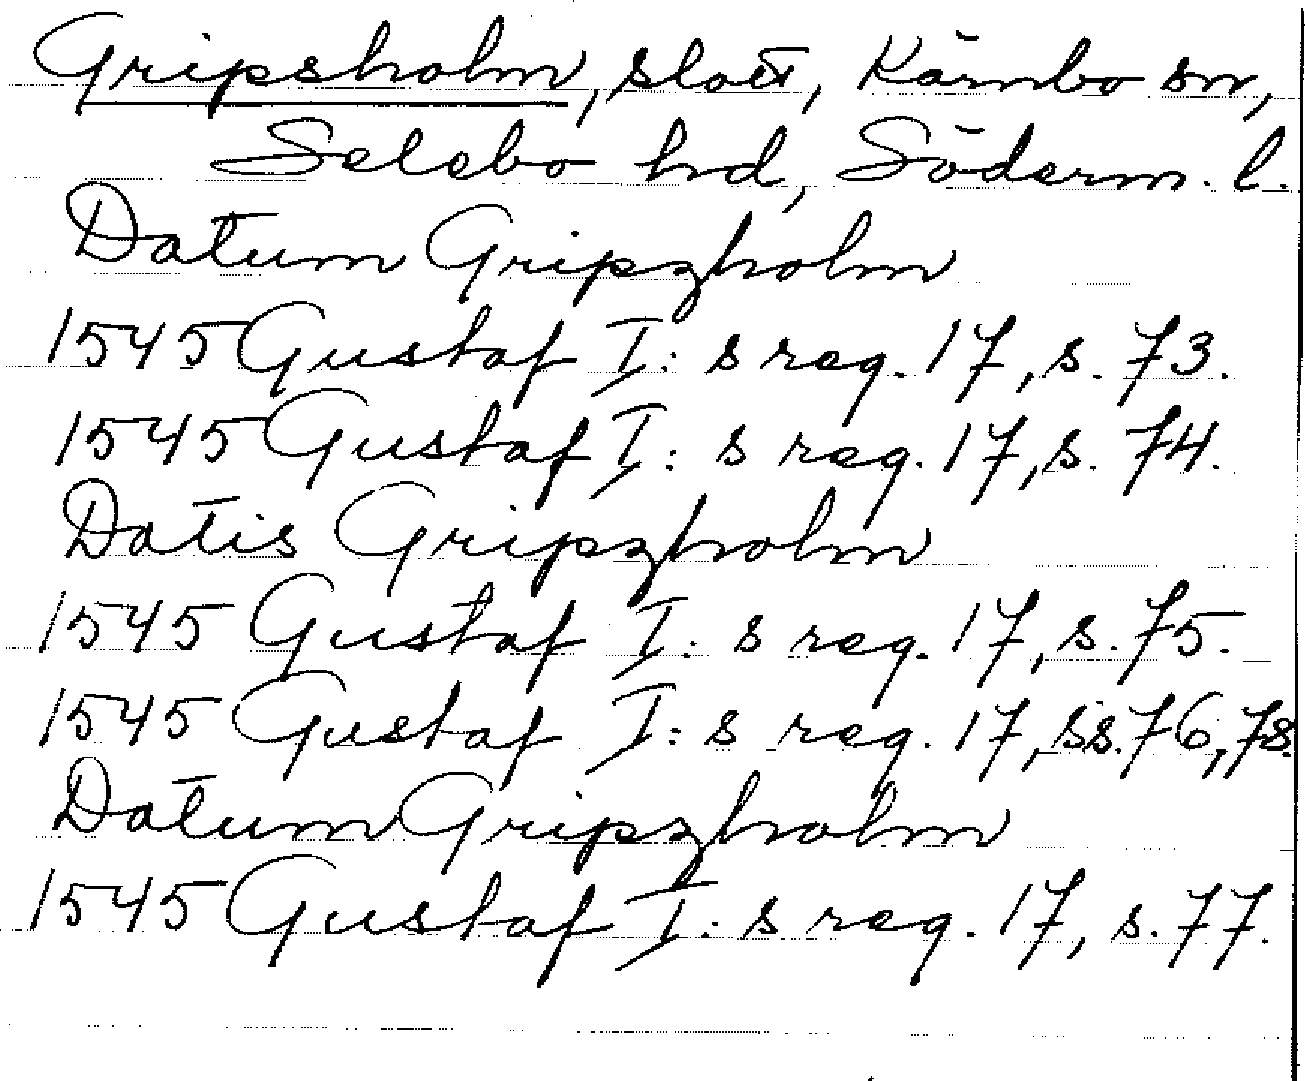 Gripsholm, slott, Kärnbo sn,
Selebo hd, Söderm. l.
Datum Gripszholm
1545 Gustaf I: s reg. 17, s. 73.
1545 Gustaf I: s reg. 17, s. 74.
Datis Gripszholm
1545 Gustaf I: s reg. 17, s. 75.
1545 Gustaf I: s reg. 17, ss. 76, 78.
Datum Gripszholm
1545 Gustaf I: s reg. 17, s. 77.